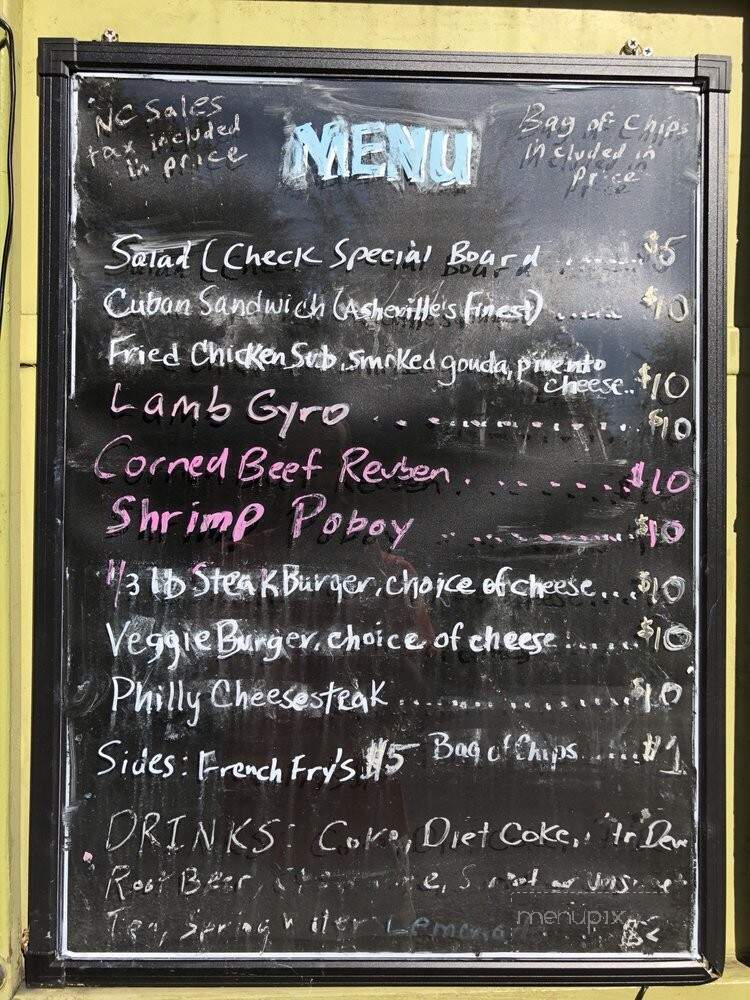 NC Sales
tax included
in price
MENU
Bag of Chips
Included in
Price
Salad (Check Special Board ....... $5
Cuban Sandwich (Asheville's Finest) ..... $10
Fried Chicken Sub, smoked gouda, pimento
cheese.. $10
Lamb Gyro ............ $10
Corned Beef Reuben ......... $10
Shrimp Poboy ............ $10
1/3 lb Steak Burger, choice of cheese... $10
Veggie Burger, choice of cheese ...... $10
Philly Cheesesteak ............... $10
Sides: French Fry's $5 Bag of Chips ..... $1
DRINKS: Coke, Diet Coke,
Root Beer,
Tea, Spring Water
$2
menupix